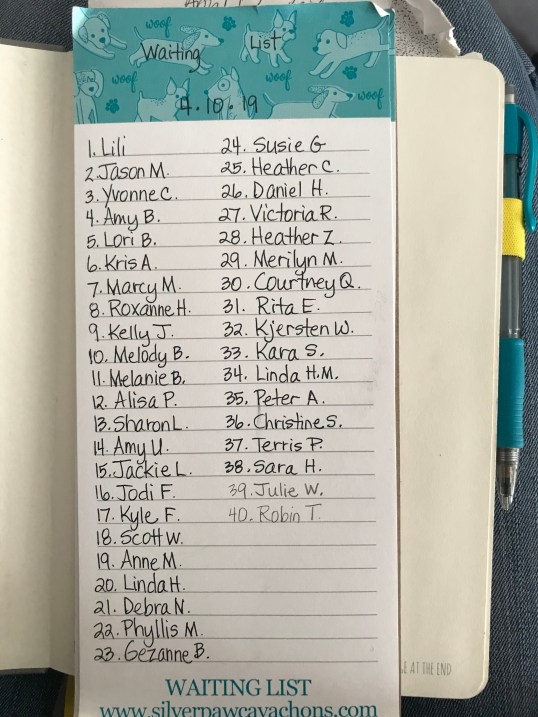 woof
woof
woof
woof
woof
Waiting List
4.10.19
1. Lili
2. Jason M.
3. Yvonne C.
4. Amy B.
5. Lori B.
6. Kris A.
7. Marcy M.
8. Roxanne H.
9. Kelly J.
10. Melody B.
11. Melanie B.
12. Alisa P.
13. Sharon L.
14. Amy U.
15. Jackie L.
16. Jodi F.
17. Kyle F.
18. Scott W.
19. Anne M.
20. Linda H.
21. Debra N.
22. Phyllis M.
23. Gezanne B.
24. Susie G
25. Heather C.
26. Daniel H.
27. Victoria R.
28. Heather Z.
29. Merilyn M.
30. Courtney Q.
31. Rita E.
32. Kjersten W.
33. Kara S.
34. Linda H.M.
35. Peter A.
36. Christine S.
37. Terris P.
38. Sara H.
39. Julie W.
40. Robin T.
WAITING LIST
www.silverpawcavachons.com
AT THE END